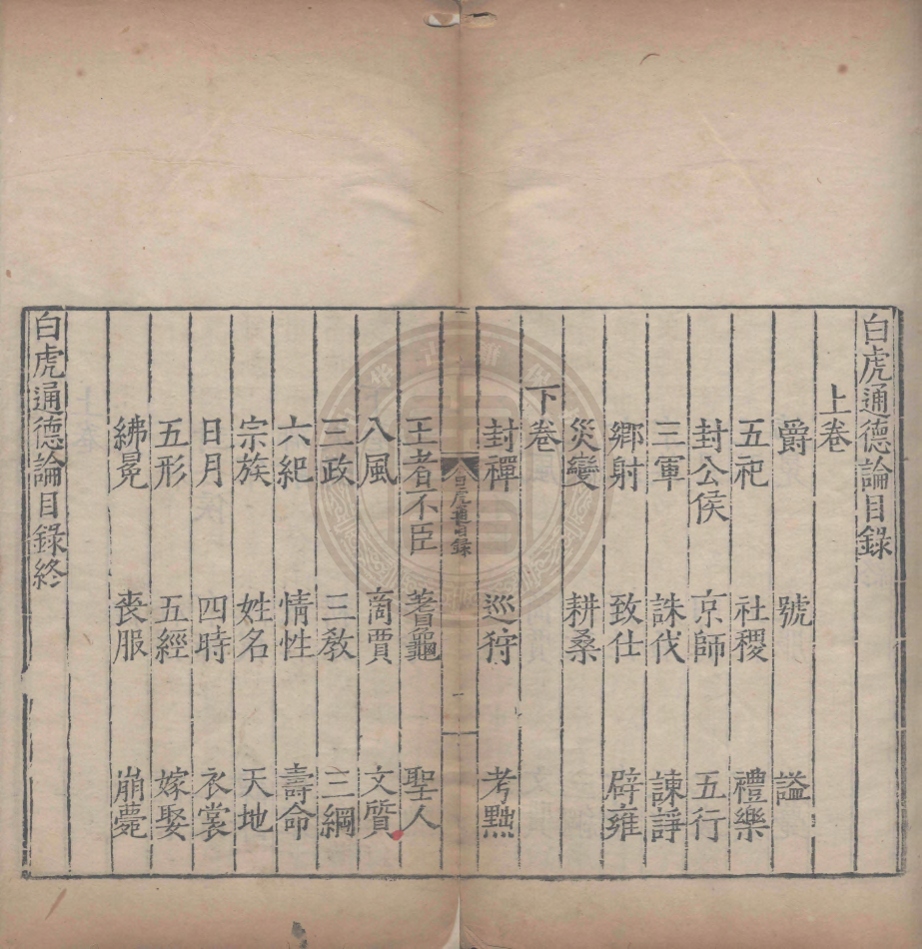 白虎通德論目錄
上卷
爵 號 謚
五祀 社稷 禮樂
封公侯 京師 五行
三軍 誅伐 諫諍
鄉射 致仕 辟雍
災變 耕桑
下卷
封禪 巡狩 考黜
白虎通目錄
一
王者不臣 蓍龜 聖人
八風 商賈 文質
三政 三教 三綱
六紀 情性 壽命
宗族 姓名 天地
日月 四時 衣裳
五形 五經 嫁娶
紼冕 喪服 崩薨
白虎通德論目錄終